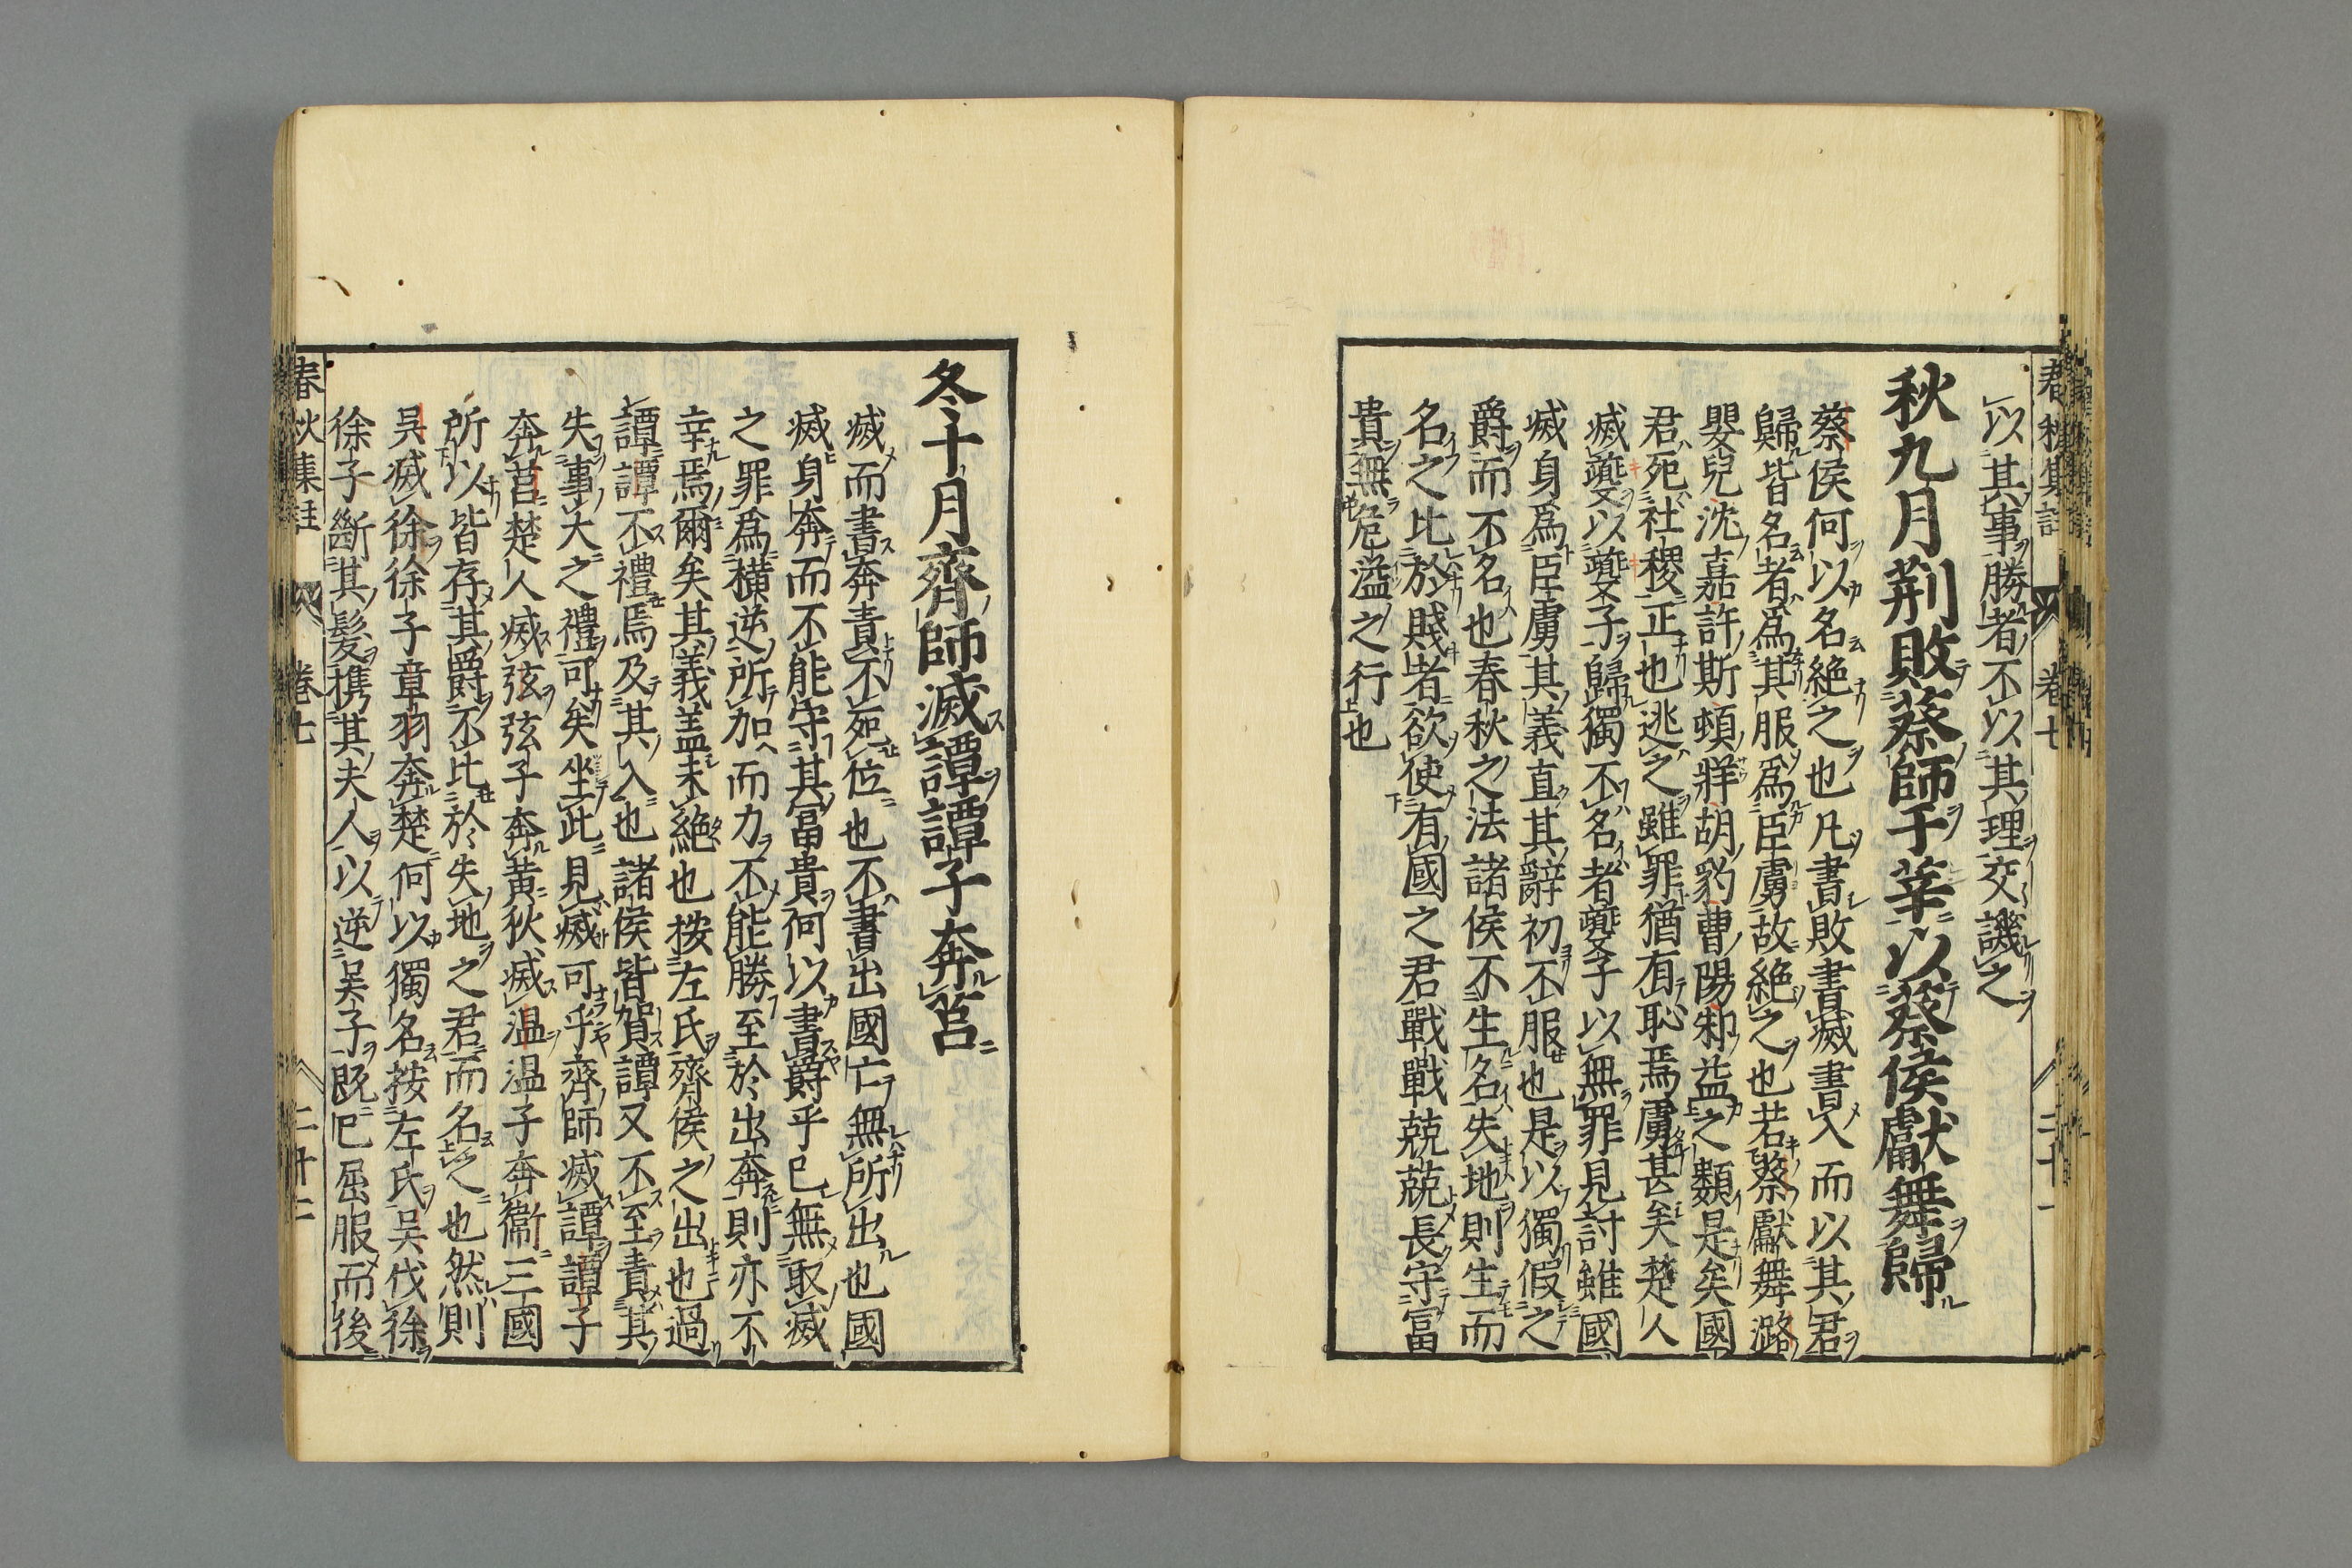 春秋集註 卷七 二十一
以其事勝者不以其理交譏之
秋九月荆敗蔡師于莘以蔡侯獻舞歸
蔡侯何以名絶之也凡書敗書滅書入而以其君
歸皆名者爲其服爲臣虜故絶之也若蔡獻舞潞
嬰兒沈嘉許斯頓牂胡豹曹陽邾益之類是矣國
君死社稷正也逃之雖罪猶有恥焉虜甚矣楚人
滅夔以夔子歸獨不名者夔子以無罪見討雖國
滅身爲臣虜其義直其辭初不服也是以獨假之
爵而不名也春秋之法諸侯不生名失地則生而
名之比於賤者欲使有國之君戰戰兢兢長守富
貴無危溢之行也
冬十月齊師滅譚譚子奔莒
滅而書奔責不死位也不書出國亡無所出也國
滅身奔而不能守其富貴何以書爵乎已無取滅
之罪爲橫逆所加而力不能勝至於出奔則亦不
幸焉爾矣其義盖未絶也按左氏齊侯之出也過
譚譚不禮焉及其入也諸侯皆賀譚又不至責其
失事大之禮可矣坐此見滅可乎齊師滅譚譚子
奔莒楚人滅弦弦子奔黃狄滅温温子奔衞三國
所以皆存其爵不比於失地之君而名之也然則
吳滅徐徐子章羽奔楚何以獨名按左氏吳伐徐
徐子斷其髮携其夫人以逆吳子既已屈服而後
春秋集註 卷七 二十二